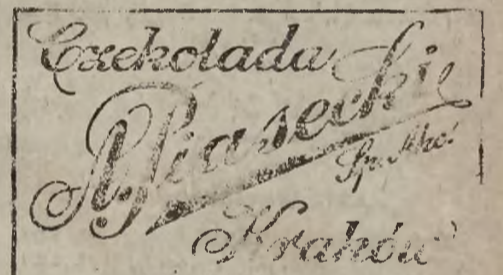 Czekolada
A. Piasecki
Sp. Akc.
Kraków